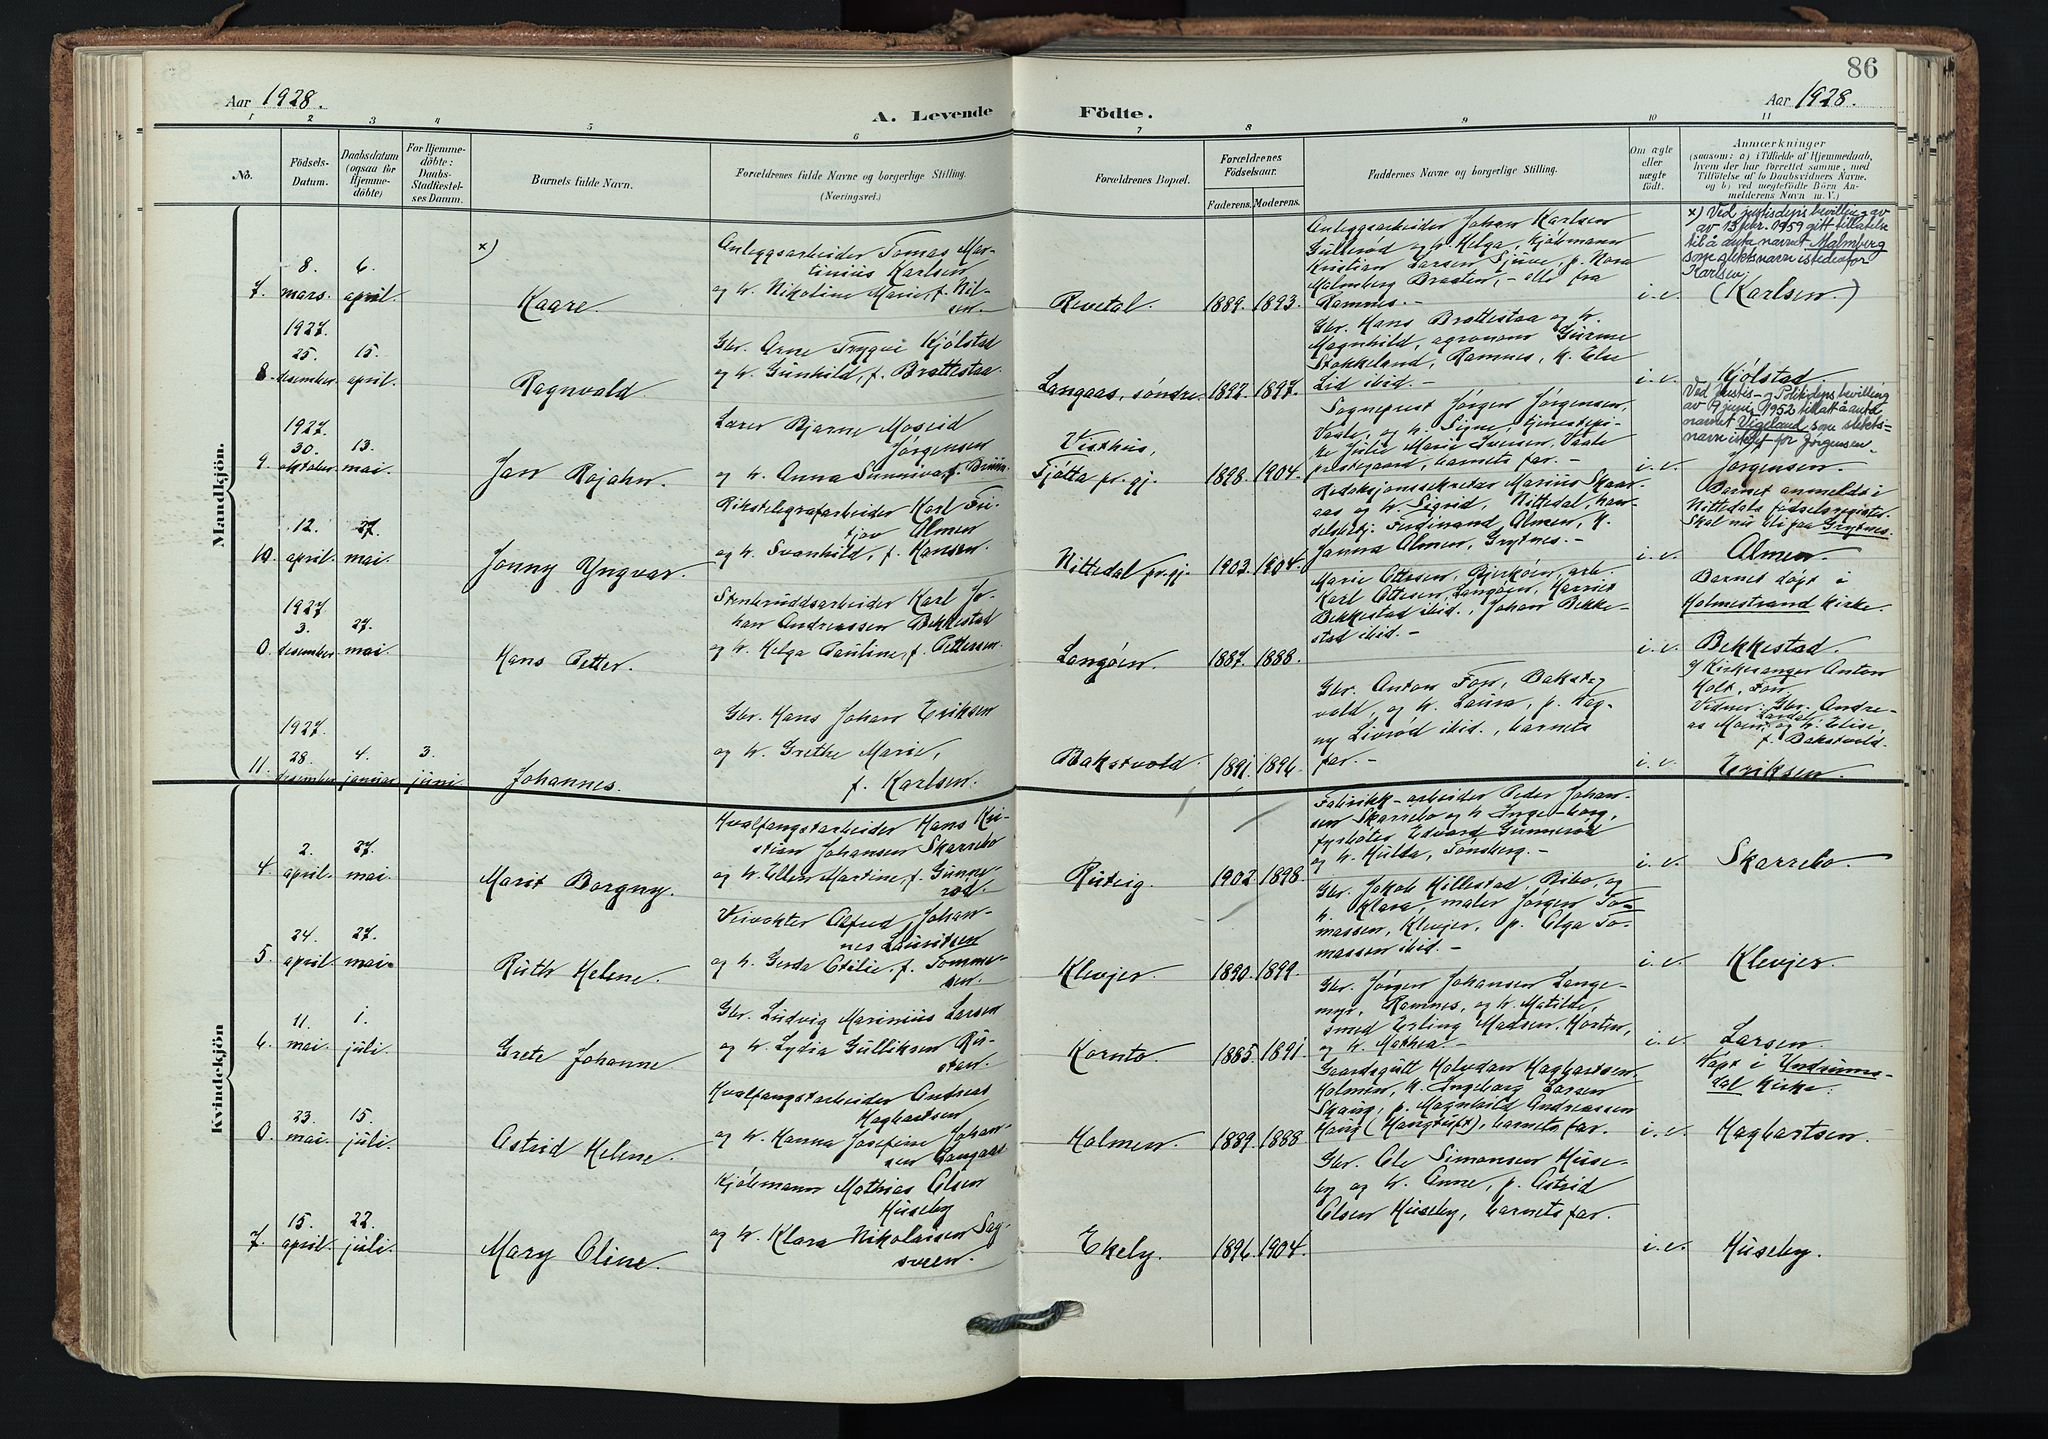 86
Aar 1928.
A. Levende Födte.
Aar 1928.
1 2 3 4 5 6 7 8 9 10 11
No.
Födsels-
Datum.
Daabsdatum
(ogsaa för
Hjemme-
döbte)
For Hjemme-
döbte:
Daabs-
Stadfæstel-
ses Datum.
Barnets fulde Navn.
Forældrenes fulde Navne og borgerlige Stilling.
(Næringsvei.)
Forældrenes Bopæl.
Forældrenes
Födselsaar.
Faderens. Moderens.
Faddernes Navne og borgerlige Stilling.
Om ægte
eller
uægte
født.
Anmærkninger
(saasom: a) i Tilfælde af Hjemmedaab,
hvem der har forrettet samme, med
Tilföielse af to Daabsvidners Navne,
og b) ved uægtefödte Börn An-
melderens Navn m. V.)
Mandkjön.
7.
8. mars.
6. april.
x)
Kaare.
Anleggsarbeider Tomas Mar-
tinius Karlsen
og h. Nikoline Marie, f. Nil-
sen.
Revetal.
1889. 1893.
Anleggsarbeider Johan Karlsen
Gullerød og h. Helga, Kjøbmann
Kristian Larsen Sjuve, p. Nora
Malmberg Brasten, - alle fra
Ramnes. -
i. e.
x) Ved justisdeps bevilling av
av 13 febr. 1959 gitt tillatelse
til å anta navnet Malmberg
som slektsnavn istedenfor
Karlsen.
(Karlsen.)
8.
1927.
25. desember.
15. april.
Ragnvald.
Gbr. Arne Trygve Kjølstad
og h. Gunhild, f. Brattestaa.
Langaas, søndre.
1892. 1897.
Gbr. Hans Brattestaa og h.
Magnhild, agronom Gunne
Stokkeland, Ramnes, h. Else
Lid ibid. -
i. e.
Kjølstad.
9.
1927.
30. oktober
13. mai.
Jan Røjahn.
Lærer Bjarne Moseid
Jørgensen
og h. Anna Sunniva, f. Bruun.
Visthus,
Tjøtta pr.gj.
1898. 1904.
Sogneprest Jørgen Jørgensen,
Vaale, og h. Signe, tjenestepi-
ke Julie Marie Iversen, Vaale
prestegaard, barnets far. -
i. e.
Ved Justis- og Politideps bevilling
av 19 juni 1952 tillatt å anta
navnet Vigeland som slekts-
navn istedf. for Jørgensen.
Jørgensen.
10.
12. april.
27. mai.
Jonny Yngvar.
Rikstelegrafarbeider Karl Fri-
tjov Almen
og h. Svanhild, f. Hansen.
Nittedal pr.gj.
1903. 1904.
Redaksjonssekretær Marius Skaar-
aas og h. Sigrid, Nittedal, han-
delsbetj. Ferdinand Almen, h.
Janna Almen, Grytnes. -
i. e.
Barnet anmeldt i
Nittedals fødselsregister.
Skal nu bli paa Grytnes.
Almen.
0.
1927
3. desember
27. mai.
Hans Petter.
Stenbruddsarbeider Karl Jo-
han Andreassen Bekkestad
og h. Helga Pauline, f. Pettersen.
Langøen.
1887. 1888.
Marie Ottesen, Bjerkøen, arb.
Karl Ottesen, Langøen, Harriet
Bekkestad ibid., Johan Bekke-
stad ibid. -
i. e.
Barnet døpt i
Holmestrand Kirke.
Bekkestad.
11.
1927.
28. desember
4. januar
3. juni
Johannes.
Gbr. Hans Johan Eriksen
og h. Grethe Marie,
f. Karlsen.
Bakstvold.
1891. 1896.
Gbr. Anton Fon, Bakst-
vold, og h. Laura, p. Dag-
ny Livrød ibid., barnets
far. -
i. e.
Kirkesanger Anton
Holt, Fon.
Vidner: Gbr. Andre-
as Moen, Lardal og h. Elise,
f. Bakstveld.
Eriksen.
Kvindekjön
4.
2. april.
27. mai.
Marit Borgny.
Hvalfangstarbeider Hans Kri-
stian Johansen Skarrebo
og h. Ellen Martine, f. Gunne-
rød.
Rutvig.
1902. 1898.
Fabrikk-arbeider Peder Johan-
sen Skarrebo og h. Ingeborg,
fyrbøter Edvard Gunnerød
og h. Hulda, Tønsberg. -
i. e.
Skarrebo.
5.
24. april.
27. mai.
Ruth Helene.
Veivokter Alfred Johan-
nes Lauritsen
og h. Gerda Otilie, f. Tomme-
sen.
Klevjer.
1890. 1899.
Gbr. Jakob Hillestad, Bibo, og
h. Klara, maler Jørgen To-
massen, Klevjer, p. Olga To-
massen ibid. -
i. e.
Klevjer.
6.
11. mai.
1. juli.
Grete Johanne.
Gbr. Ludvig Marinius Larsen
og h. Lydia Gulliksen Ru-
stan.
Kornto.
1885. 1891.
Gbr. Jørgen Johansen Lange-
myr, Ramnes, og h. Matilde,
smed Erling Madsen, Horten,
og h. Mathea. -
i. e.
Larsen.
0.
23. mai.
15. juli.
Astrid Helene.
Hvalfangstarbeider Andreas
Hagbartsen
og h. Hanna Josefine Johan-
sen Langaas
Holmen.
1889. 1888
Gaardsgutt Halvdan Hagbartsen,
Holmen, h. Ingeborg Larsen
Skaug, p. Magnhild Andreassen
Haug (Haugtuft), barnets far.
i. e.
Døpt i Undrums-
dal Kirke.
Hagbartsen.
7.
15. april.
22. juli.
Mary Oline.
Kjøbmann Mathias Olsen
Huseby
og h. Klara Nikolaisen Sag-
sveen.
Ekely.
1896. 1904.
Gbr. Ole Simonsen Huse-
by og h. Anne, p. Astrid
Olsen Huseby, barnets far.
i. e.
Huseby.